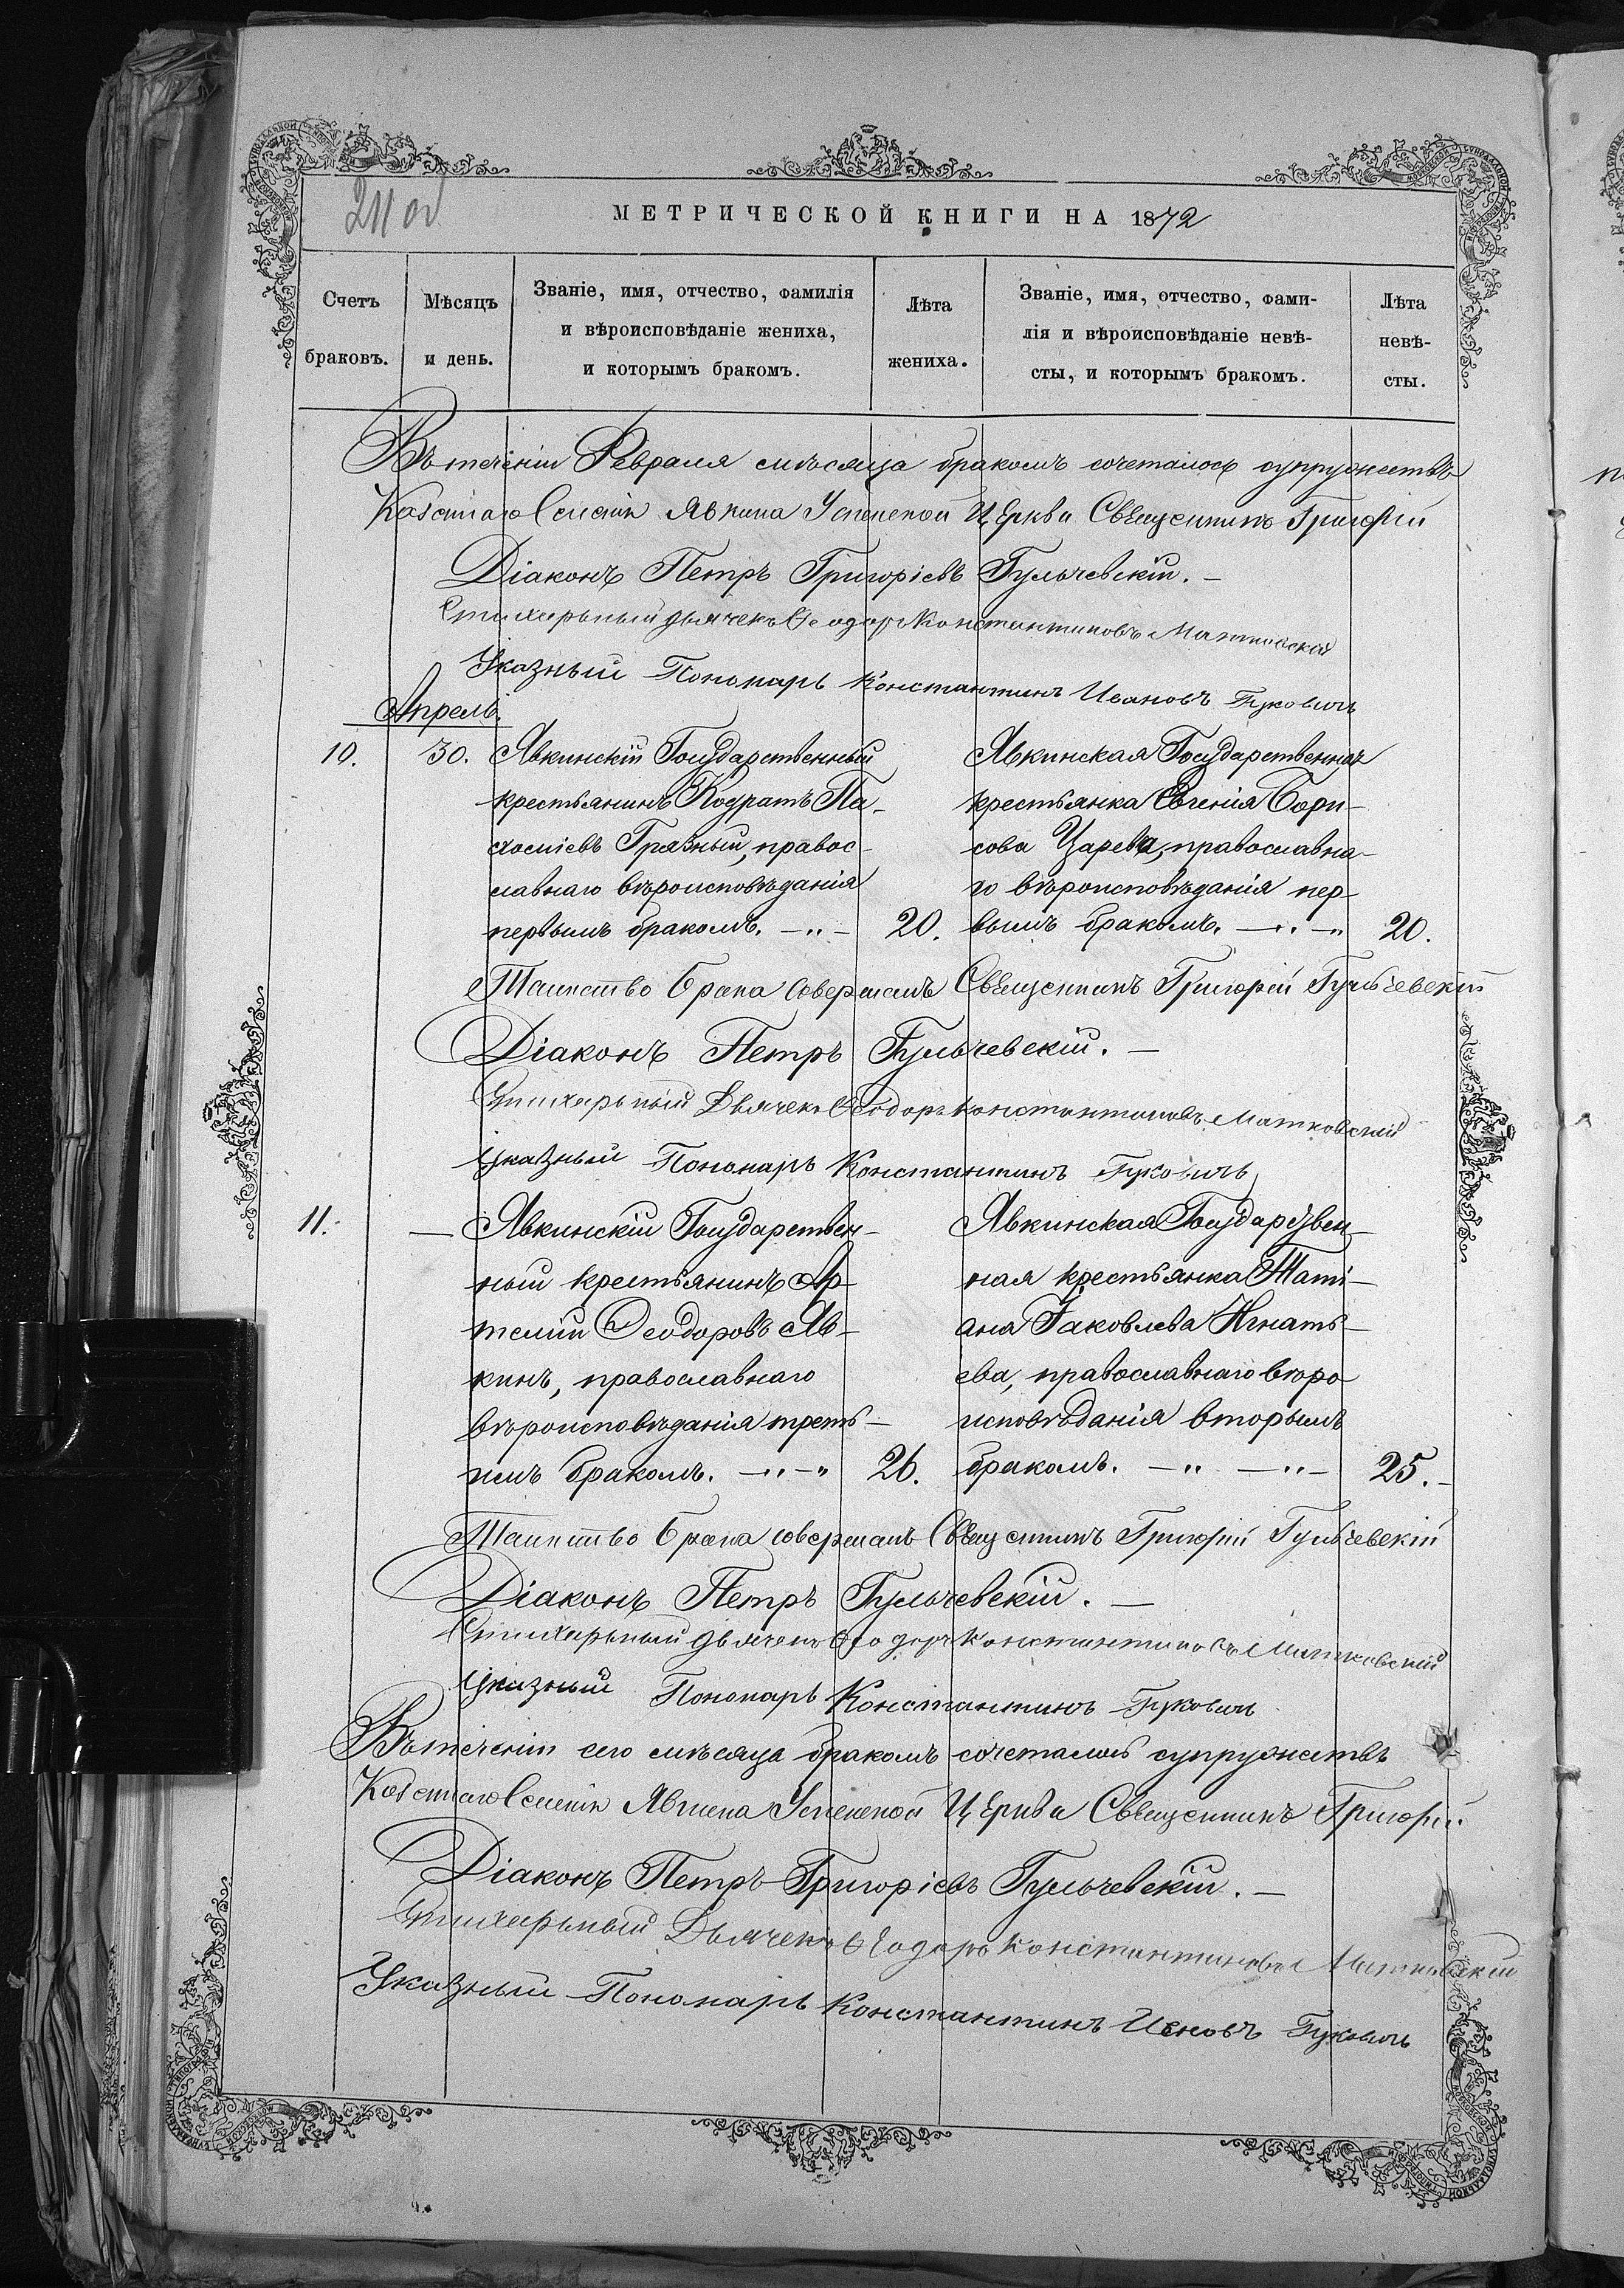 211 об
МЕТРИЧЕСКОЙ КНИГИ НА 1872
Счетъ браковъ.
Мѣсяцъ и день.
Званіе, имя, отчество, фамилія
и вѣроисповѣданіе жениха,
и которымъ бракомъ.
Лѣта жениха.
Званіе, имя, отчество, фами-
лія и вѣроисповѣданіе невѣ-
сты, и которымъ бракомъ.
Лѣта невѣ-
сты.
Въ теченіи Февраля мѣсяца бракомъ сочеталось супружествъ
Явкина Успенской Церкви Священникъ Григорій
Діаконъ Петръ Григоріевъ Гульчевскій.
Стихарный Дьячекъ Ѳеодоръ Константиновъ Матковскій
Указный Пономарь Константинъ Ивановъ Гуковичъ
Апрель.
10.
30.
Явкинскій Государственный
крестьянинъ Кодратъ Па-
хоміевъ Грязный, правос-
лавнаго вѣроисповѣданія
первымъ бракомъ. —"—
20.
Явкинская Государственная
крестьянка Евгенія Бори-
сова Царева, православна-
го вѣроисповѣданія пер-
вымъ бракомъ. —"—"
20.
Таинство брака совершалъ Священникъ Григорій Гульчевскій
Діаконъ Петръ Гульчевскій. —
Стихарный Дьячекъ Ѳеодоръ Константиновъ Матковскій
Указный Пономарь Константинъ Гуковичъ
11.
—
Явкинскій Государствен-
ный крестьянинъ Ар-
темій Ѳеодоровъ Яв-
кинъ, православнаго
вѣроисповѣданія треть-
имъ бракомъ. —"—"
26.
Явкинская Государствен-
ная крестьянка Таті-
ана Іаковлева Игнать-
ева, православнаго вѣро
исповѣданія вторымъ
бракомъ. —" —"—
25.
Таинство брака совершалъ Священникъ Григорій Гульчевскій
Діаконъ Петръ Гульчевскій. —
Стихарный Дьячекъ Ѳеодоръ Константиновъ Матковскій
Указный Пономарь Константинъ Гуковичъ
Въ теченіи сего мѣсяца бракомъ сочеталось супружествъ
Явкина Успенской Церкви Священникъ Григорій
Діаконъ Петръ Григоріевъ Гульчевскій. —
Стихарный Дьячекъ Ѳеодоръ Константиновъ Матковскій
Указный Пономарь Константинъ Гуковичъ